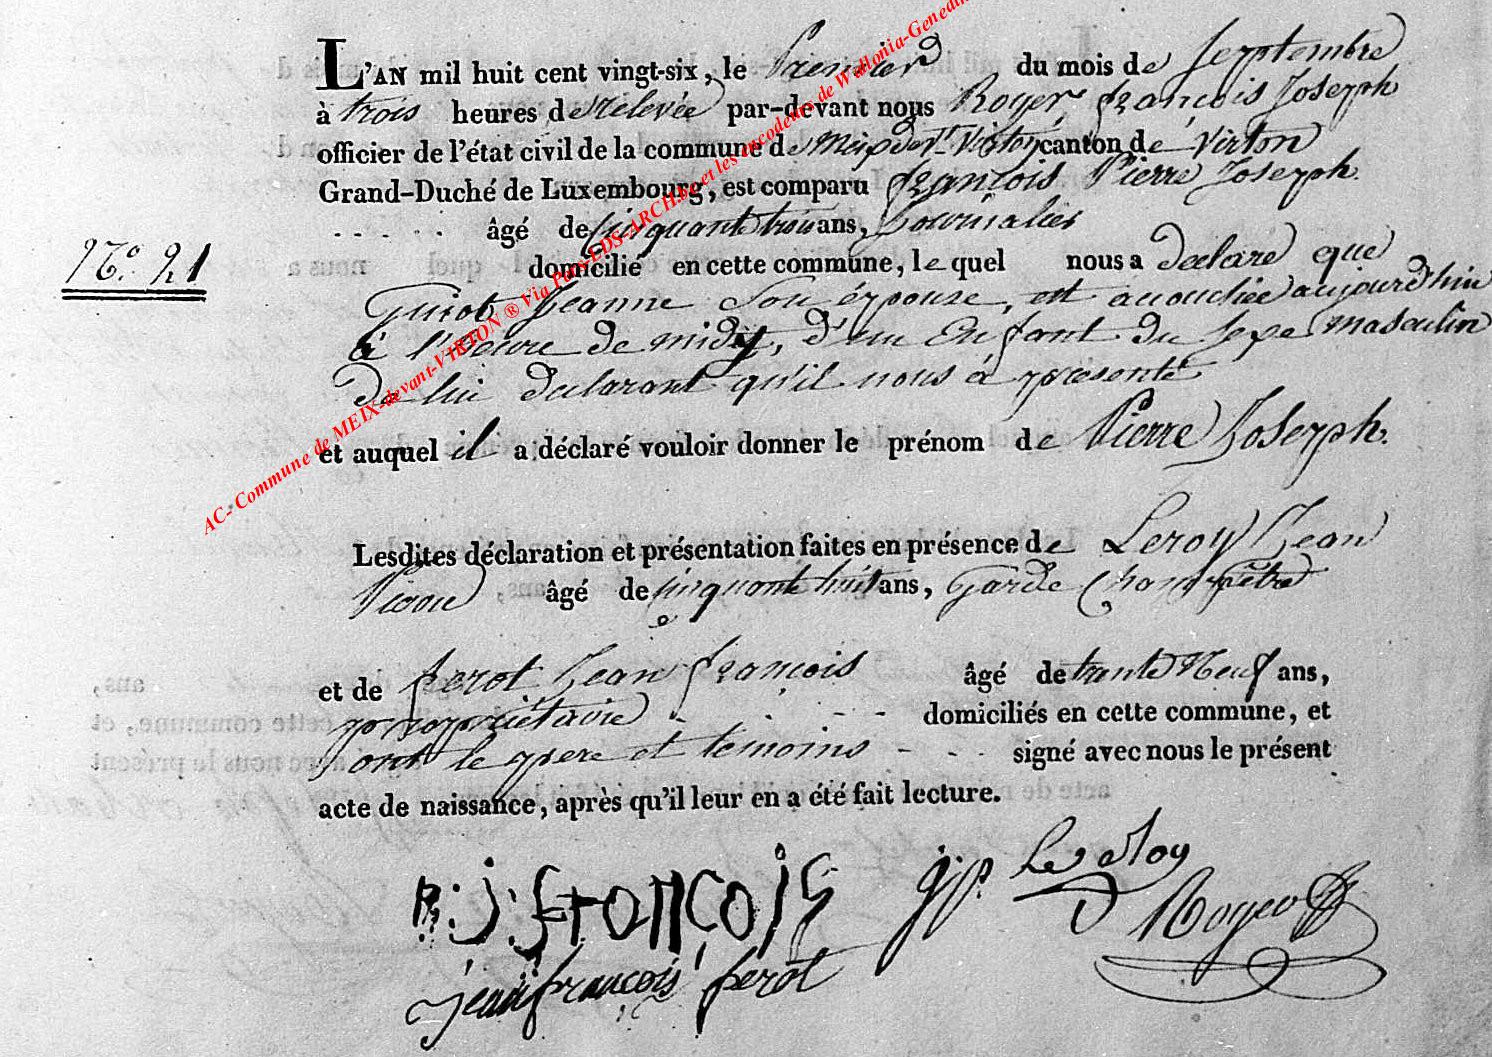 L'AN mil huit cent vingt-six, le Premier du mois de Septembre
à trois heures de relevée par-devant nous Royer françois Joseph
officier de l'état civil de la commune de Meix dev.t Virton canton de Virton
Grand-Duché de Luxembourg, est comparu françois Pierre Joseph
âgé de cinquante trois ans, Journalier
N.o 21
domicilié en cette commune, le quel nous a declaré que
Guiot Jeanne Son épouse, est accouchée aujourd'hui
à l'heure de midy, d'un Enfant du Sexe masculin
De lui declarant qu'il nous à presenté
et auquel il a déclaré vouloir donner le prénom de Pierre Joseph.
Lesdites déclaration et présentation faites en présence de Leroy Jean
âgé de cinquante huit ans, Garde Champêtre
et de perot Jean françois âgé de trente Neuf ans,
proprietaire domiciliés en cette commune, et
sont le pere et temoins signé avec nous le présent
acte de naissance, après qu'il leur en a été fait lecture.
P: J: françois
jp. Le Roy
Royer
jean françois perot
AC- Commune de MEIX-devant-VIRTON ® Via Pass-LDS-ARCH.be et les encodeurs de Wallonia-Genedin